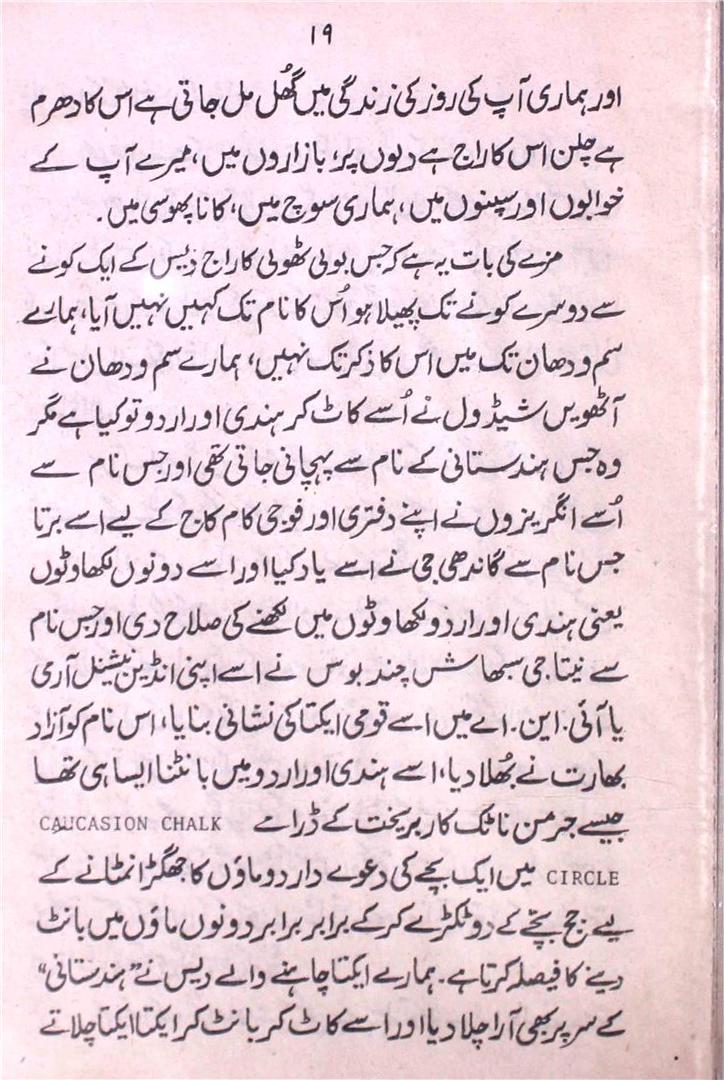 ۱۹
اور ہماری آپ کی روز کی زندگی میں گھُل مل جاتی ہے اس کا دھرم
ہے چلن اس کا راج ہے دیوں پر، بازاروں میں، میرے آپ کے
خوابوں اور سپنوں میں، ہماری سوچ میں، کانا پھوسی میں۔
مزے کی بات یہ ہے کہ جس بولی ٹھولی کا راج دیس کے ایک کونے
سے دوسرے کونے تک پھیلا ہو اُس کا نام تک کہیں نہیں آیا، ہمارے
سم ودھان تک میں اس کا ذکر تک نہیں، ہمارے سم ودھان نے
آٹھویں شیڈول نے اُسے کاٹ کر ہندی اور اردو تو کیا ہے مگر
وہ جس ہندستانی کے نام سے پہچانی جاتی تھی اور جس نام سے
اُسے انگریزوں نے اپنے دفتری اور فوجی کام کاج کے لیے اسے برتا
جس نام سے گاندھی جی نے اسے یاد کیا اور اسے دونوں لکھاوٹوں
یعنی ہندی اور اردو لکھاوٹوں میں لکھنے کی صلاح دی اور جس نام
سے نیتا جی سبھاش چندر بوس نے اسے اپنی انڈین نیشنل آرمی
یا آئی۔ این۔ اے میں اسے قومی ایکتا کی نشانی بنایا، اس نام کو آزاد
بھارت نے بھُلا دیا، اسے ہندی اور اردو میں بانٹنا ایسا ہی تھا
جیسے جرمن ناٹک کار بریخت کے ڈرامے CAUCASION CHALK
CIRCLE میں ایک بچے کی دعوے دار دو ماؤں کا جھگڑا نمٹانے کے
لیے جج بچے کے دو ٹکڑے کر کے برابر برابر دونوں ماؤں میں بانٹ
دینے کا فیصلہ کرتا ہے۔ ہمارے ایکتا چاہنے والے دیس نے "ہندستانی"
کے سر پر بھی آرا چلا دیا اور اسے کاٹ کر بانٹ کر ایکتا ایکتا چلاتے